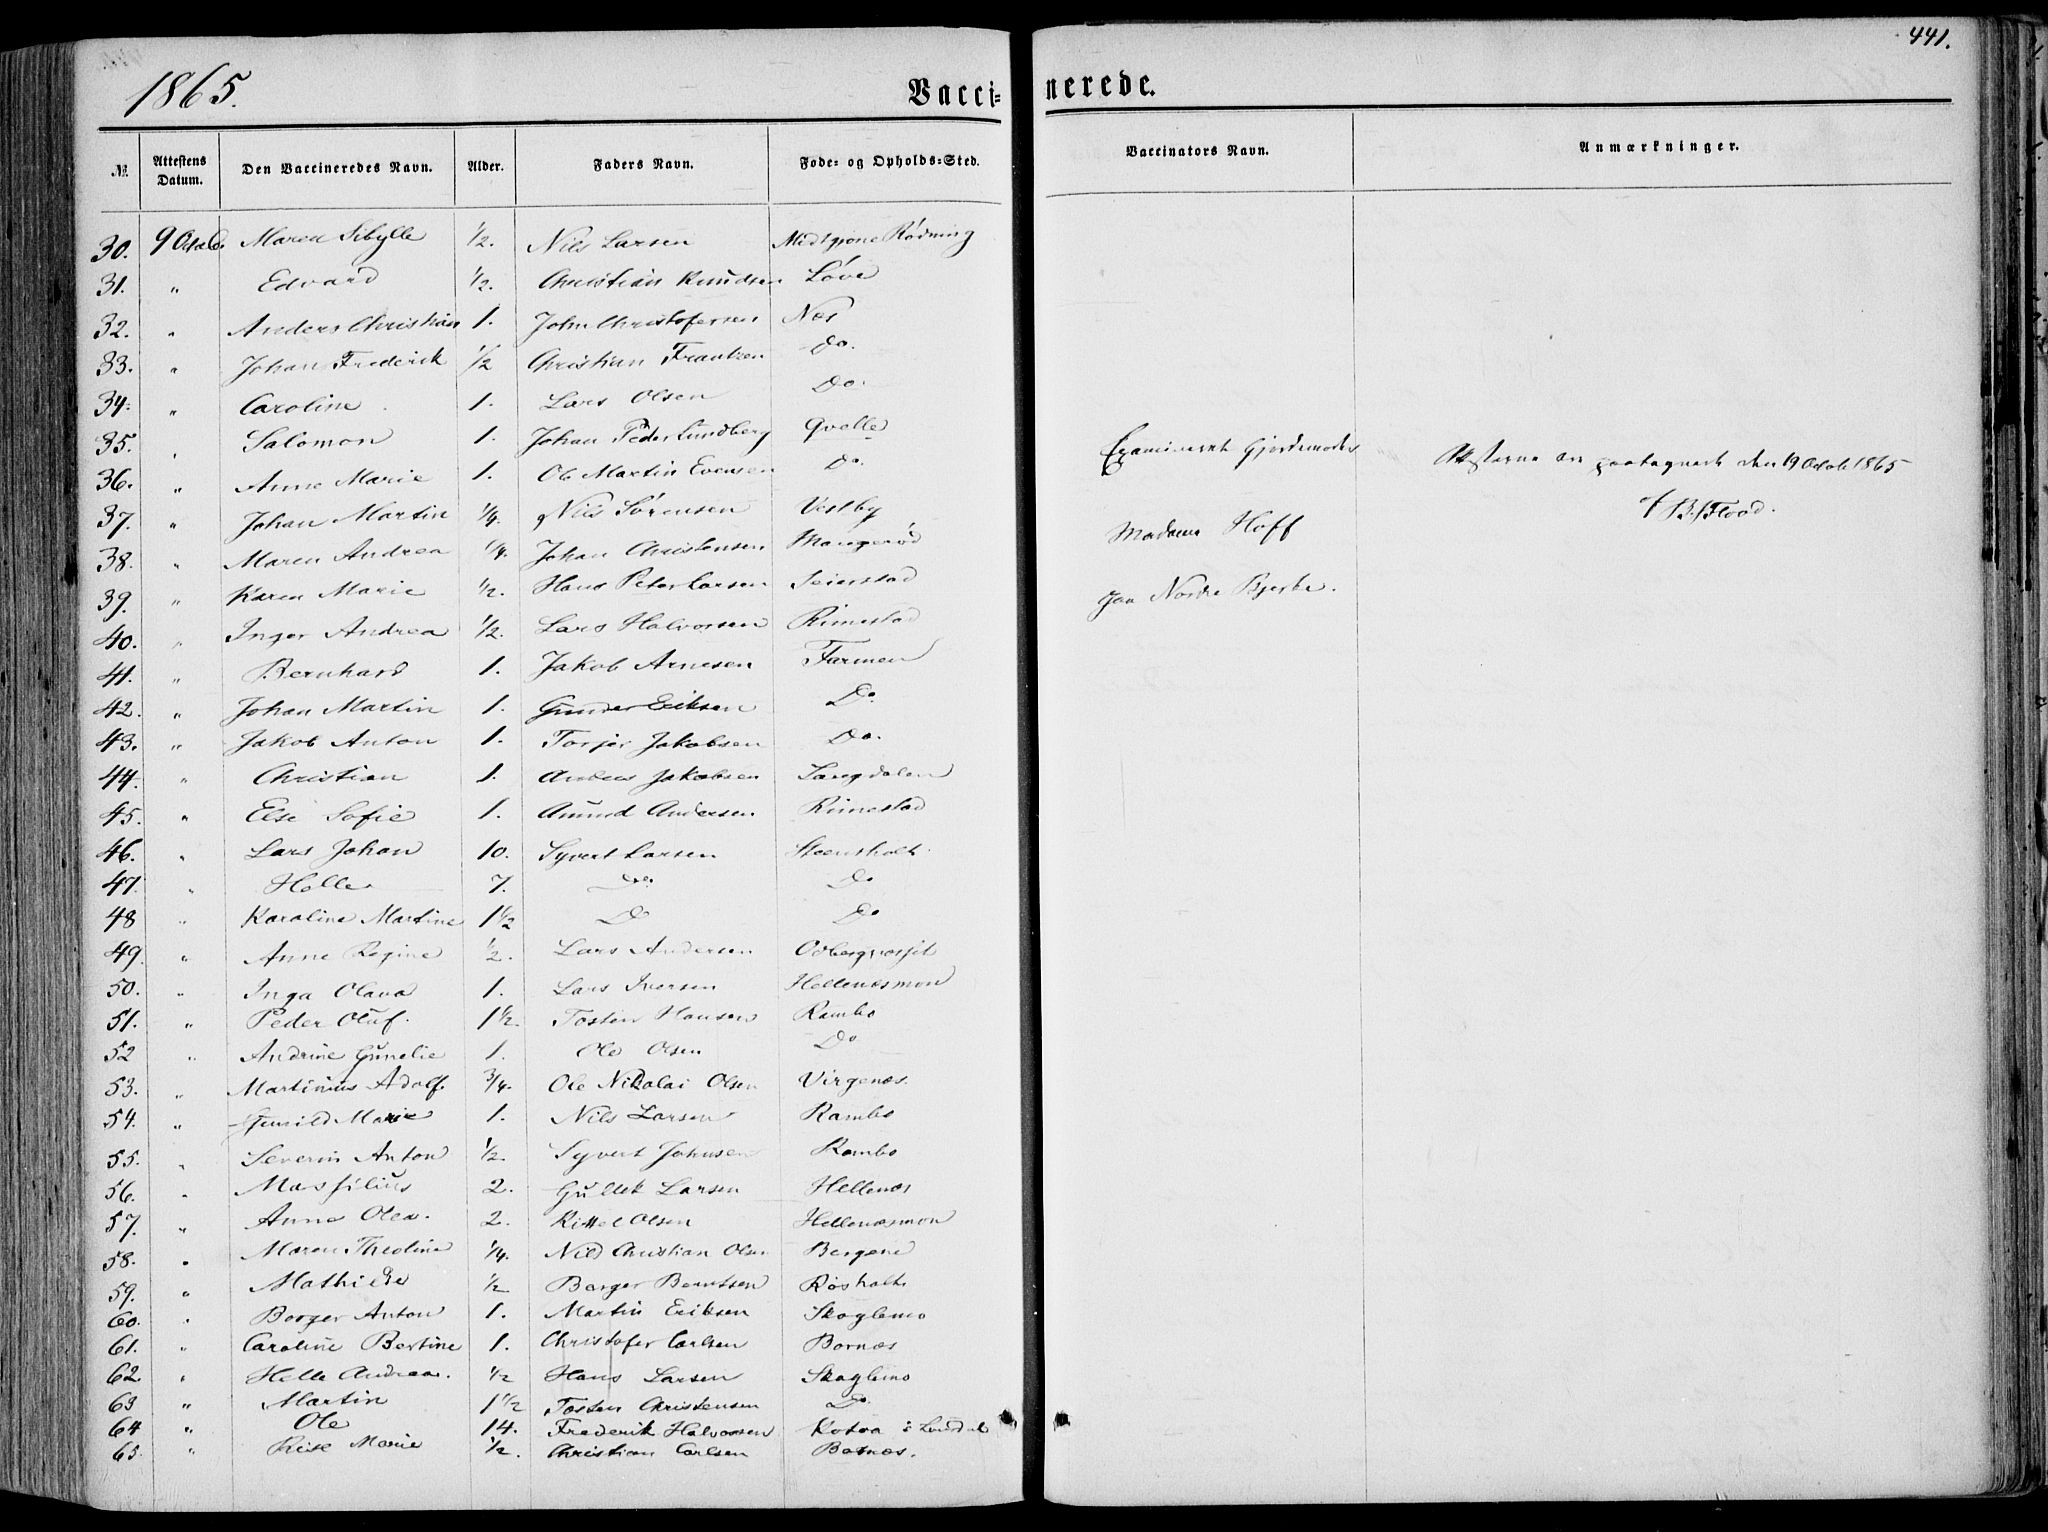 441.
1865.
Vacci- nerede.
№ Attestens Datum. Den Vaccineredes Navn. Alder. Faders Navn. Føde- og Opholds-Sted. Vaccinators Navn. Anmærkninger.
30. 9 Maren Sibylle 1/2. Nils Larsen Rødning
31. " Edvard 1/2. Christian Knudsen Løve
32. " Anders Christian 1. John Christofersen Næs
33. " Johan Frederik 1/2 Christian Frantzen Do.
34. " Caroline 1. Lars Olsen Do.
35. " Salomon 1. Johan Peder Lundberg Qvelle
36. " Anne Marie 1. Ole Martin Evensen Do.
37. " Johan Martin 1/4. Nils Sørensen Vestby
38. " Maren Andrea 1/4. Johan Christensen Mangerød
39. " Karen Marie 1/2. Hans Peter Larsen Seierstad
40. " Inger Andrea 1/2. Lars Halvorsen Rimestad
41. " Bernhard 1. Jakob Arnesen Farmen
42. " Johan Martin 1. Gunder Eriksen Do.
43. " Jakob Anton 1. Torjer Jakobsen Do.
44. " Christian 1. Anders Jakobsen
45. " Else Sofie 1. Amund Andersen Rimestad
46. " Lars Johan 10. Syvert Larsen Steensholt.
47. " Helle 7. Do. Do
48 " Karoline Martine 1 1/2 Do Do
49. " Anne Regine 1/2. Lars Andersen
50. " Inga Olava 1. Lars Iversen Hellenæsmon
51. " Peder Oluf. 1 1/2. Tosten Hansen Rambo
52 " Andrine Gunelie 1. Ole Olsen Do
53. " Martinius Adolf. 3/4. Ole Nikolai Olsen Virgenæs.
54. " Gunild Marie 1. Nils Larsen Rambo
55. " Severin Anton 1/2. Syvert Johnsen Rambo
56. " Massilius 2. Gullek Larsen Hellenæs
57. " Anne Olea. 2. Kittel Olsen Hellenæsmon
58. " Maren Theoline 1/4. Nils Christian Olsen Bergene
59. " Mathilde 1/2 Borger Berntsen Røsholt
60. " Borger Anton 1. Martin Eriksen Skoglemo
61. " Caroline Bertine 1. Christofer Carlsen Bornæs
62. " Helle Andrea. 1/2 Hans Larsen Skoglemo
63 " Martin 1 1/2 Tosten Christensen Do.
64 " Ole 14. Frederik Halvorsen i
65. " Marie 1/2. Christian Carlsen Bornæs.
Examineret Gjordemoder
Madame Hoff
Nordre Bjerke.
Attesterne ere den 19 Octob 1865
Flood.